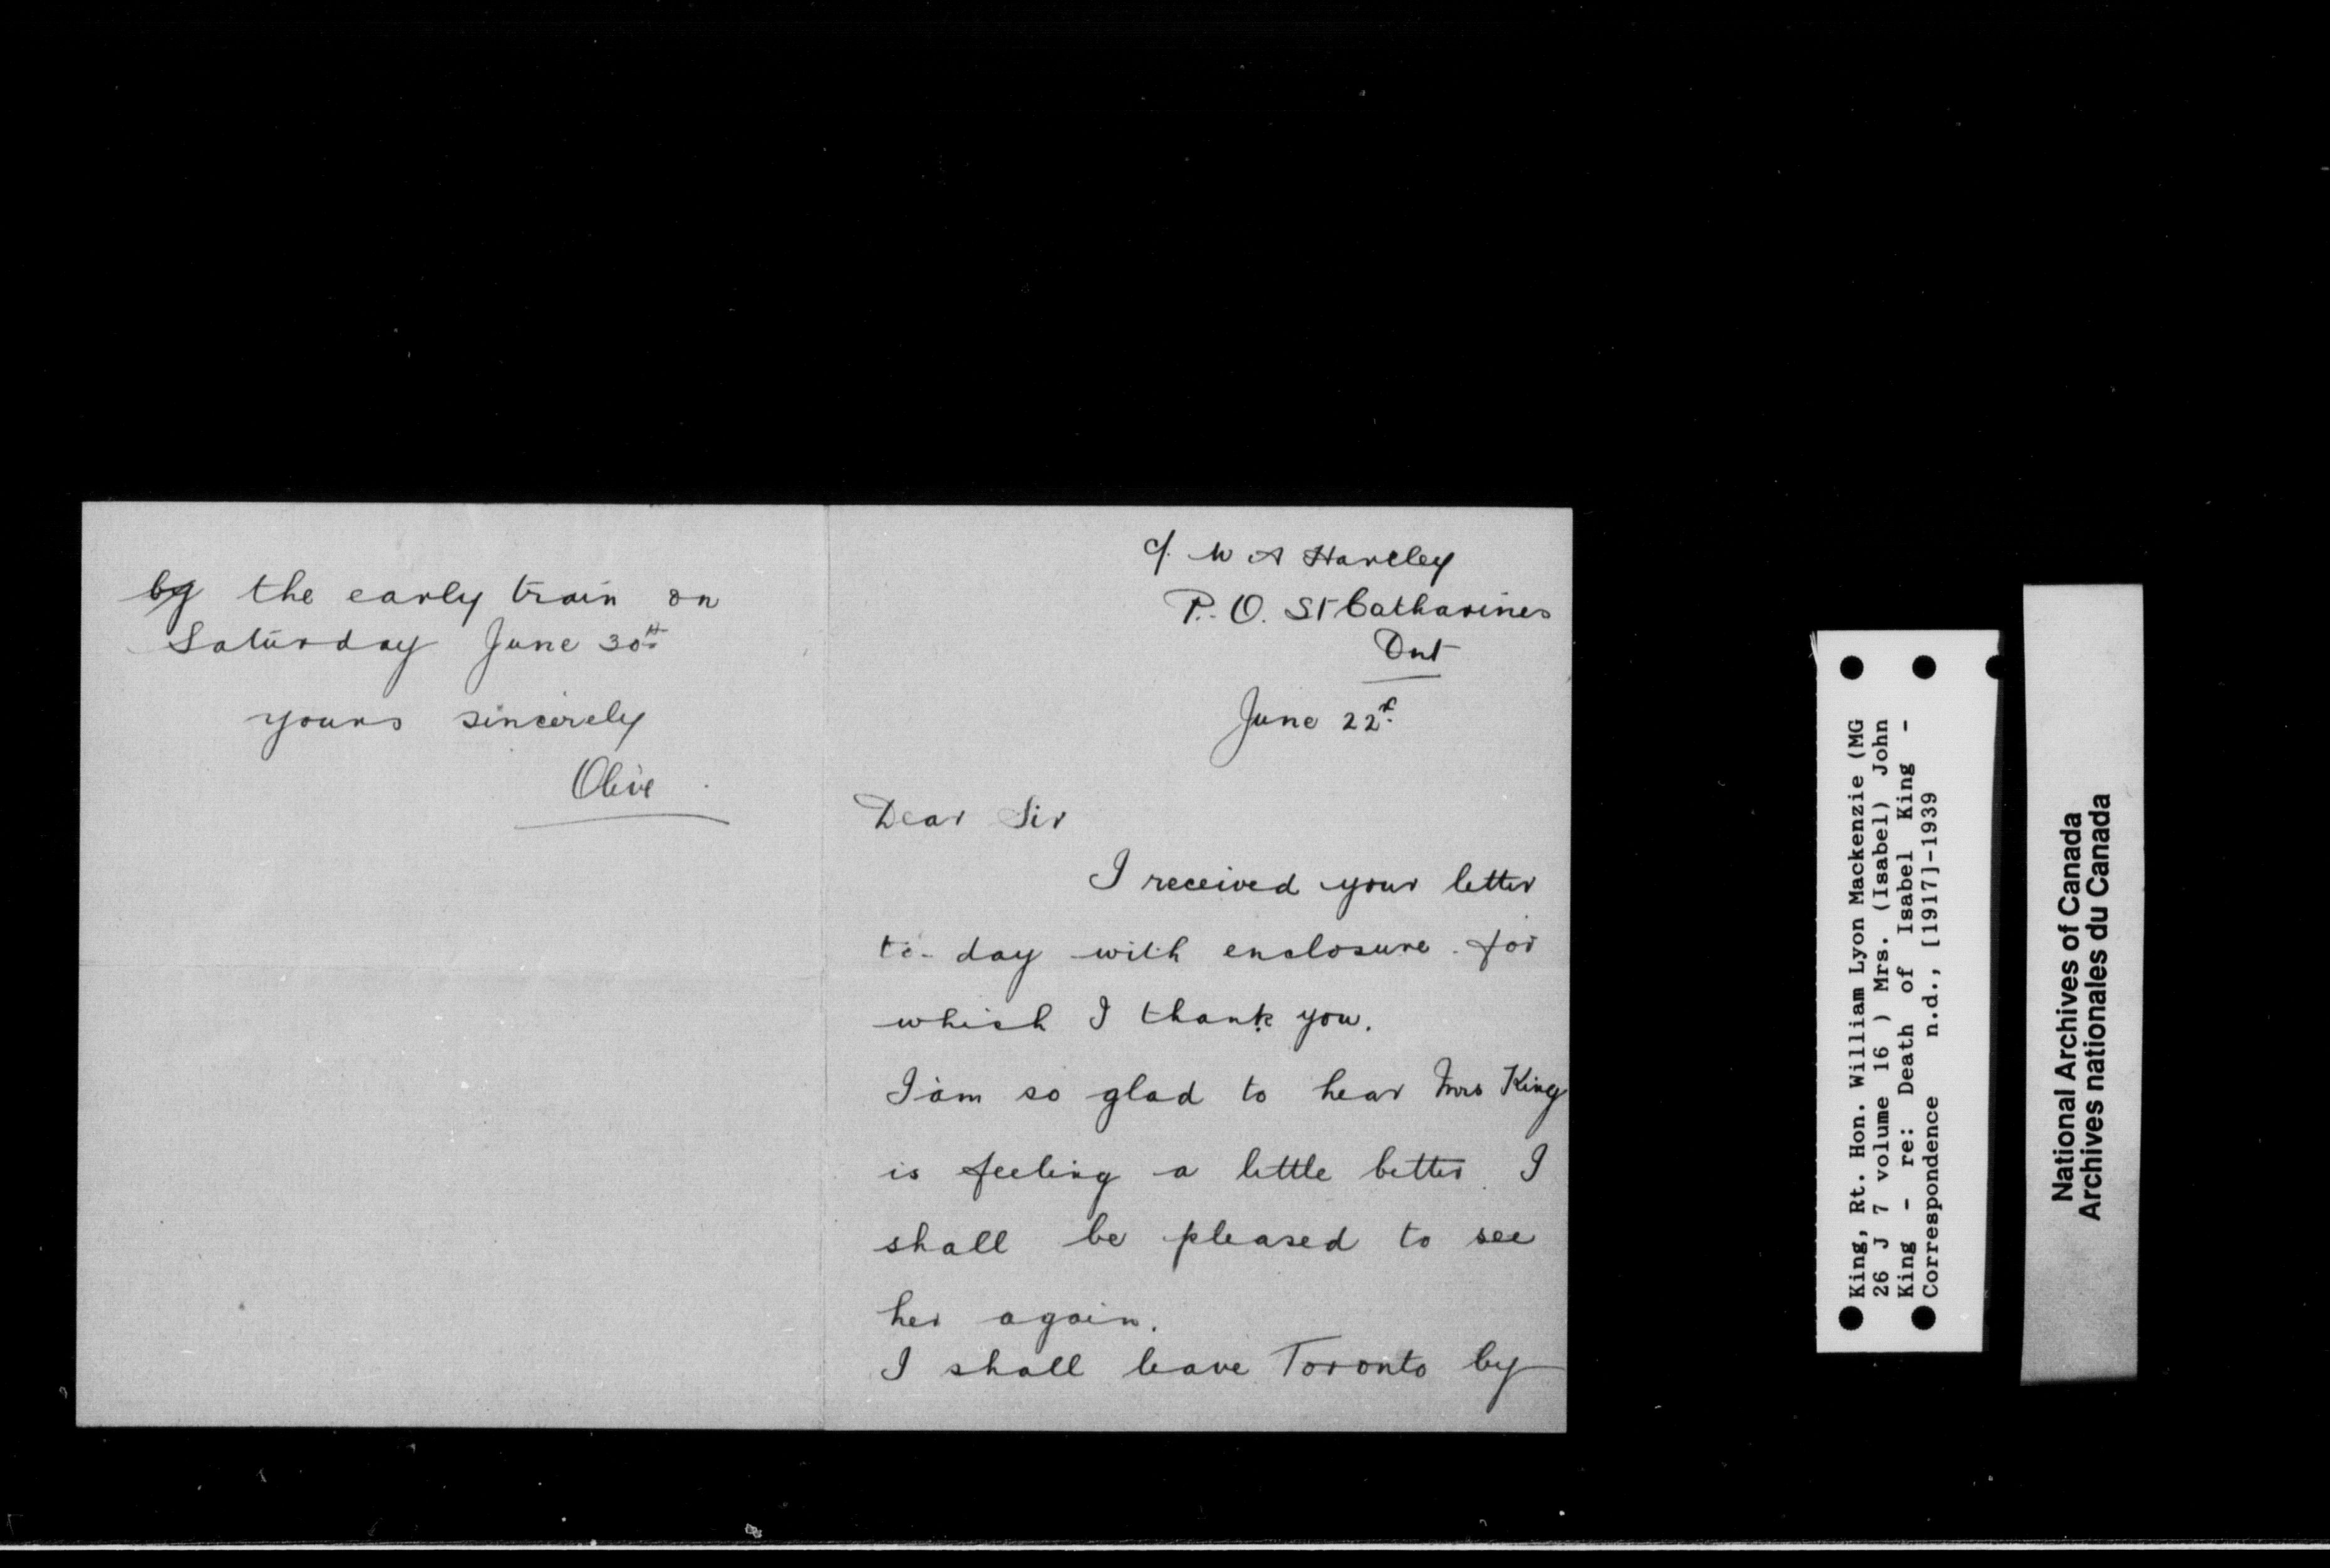 c/. W A Hartley
P.O. St Catharines
Ont
June 22d.
Dear Sir
I received your letter
to-day with enclosure. for
which I thank you.
I am so glad to hear Mrs King
is feeling a little better. I
shall be pleased to see
her again.
I shall leave Toronto by
by the early train on
Saturday June 30th
yours sincerely
Olive.
King, Rt. Hon. William Lyon Mackenzie (MG
26 J 7 volume 16 ) Mrs. (Isabel) John
King - re: Death of Isabel King -
Correspondence n.d., [1917]-1939
National Archives of Canada
Archives nationales du Canada